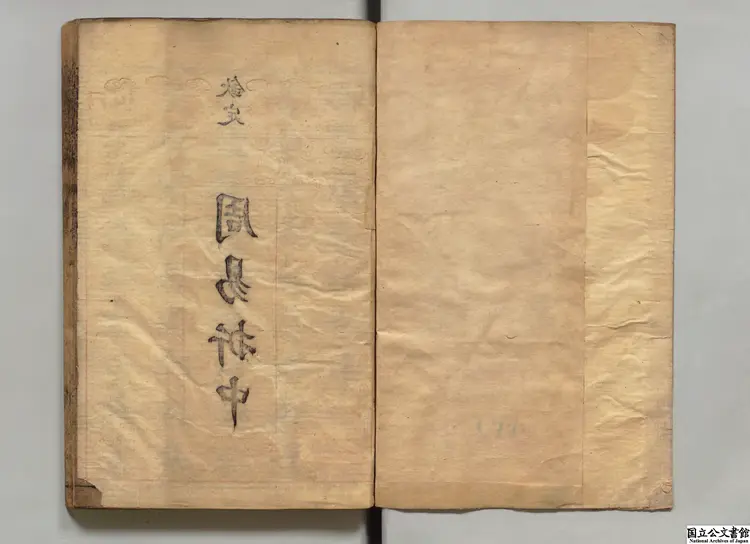 欽定
周易折中
国立公文書館
National Archives of Japan